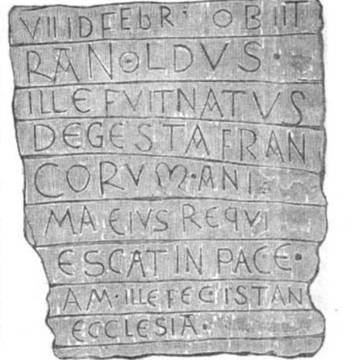 VIIIDFEBR· OBIIT
RANOLDVS ·
ILLE FVITNATVS
DEGESTAFRAN
CORVM·ANI
MA EIVS REQVI
ESCAT IN PACE·
AM·ILLEFECISTAN
ECCLESIA·